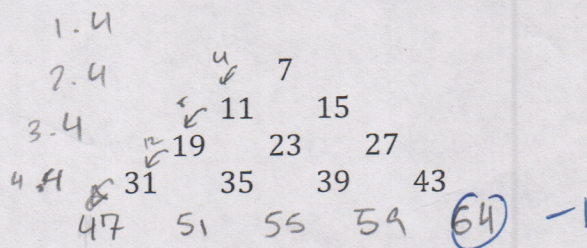 1.4
4 7
2.4
11 15
3.4
12 19 23 27
4.4 31 35 39 43
47 51 55 59 64 -1